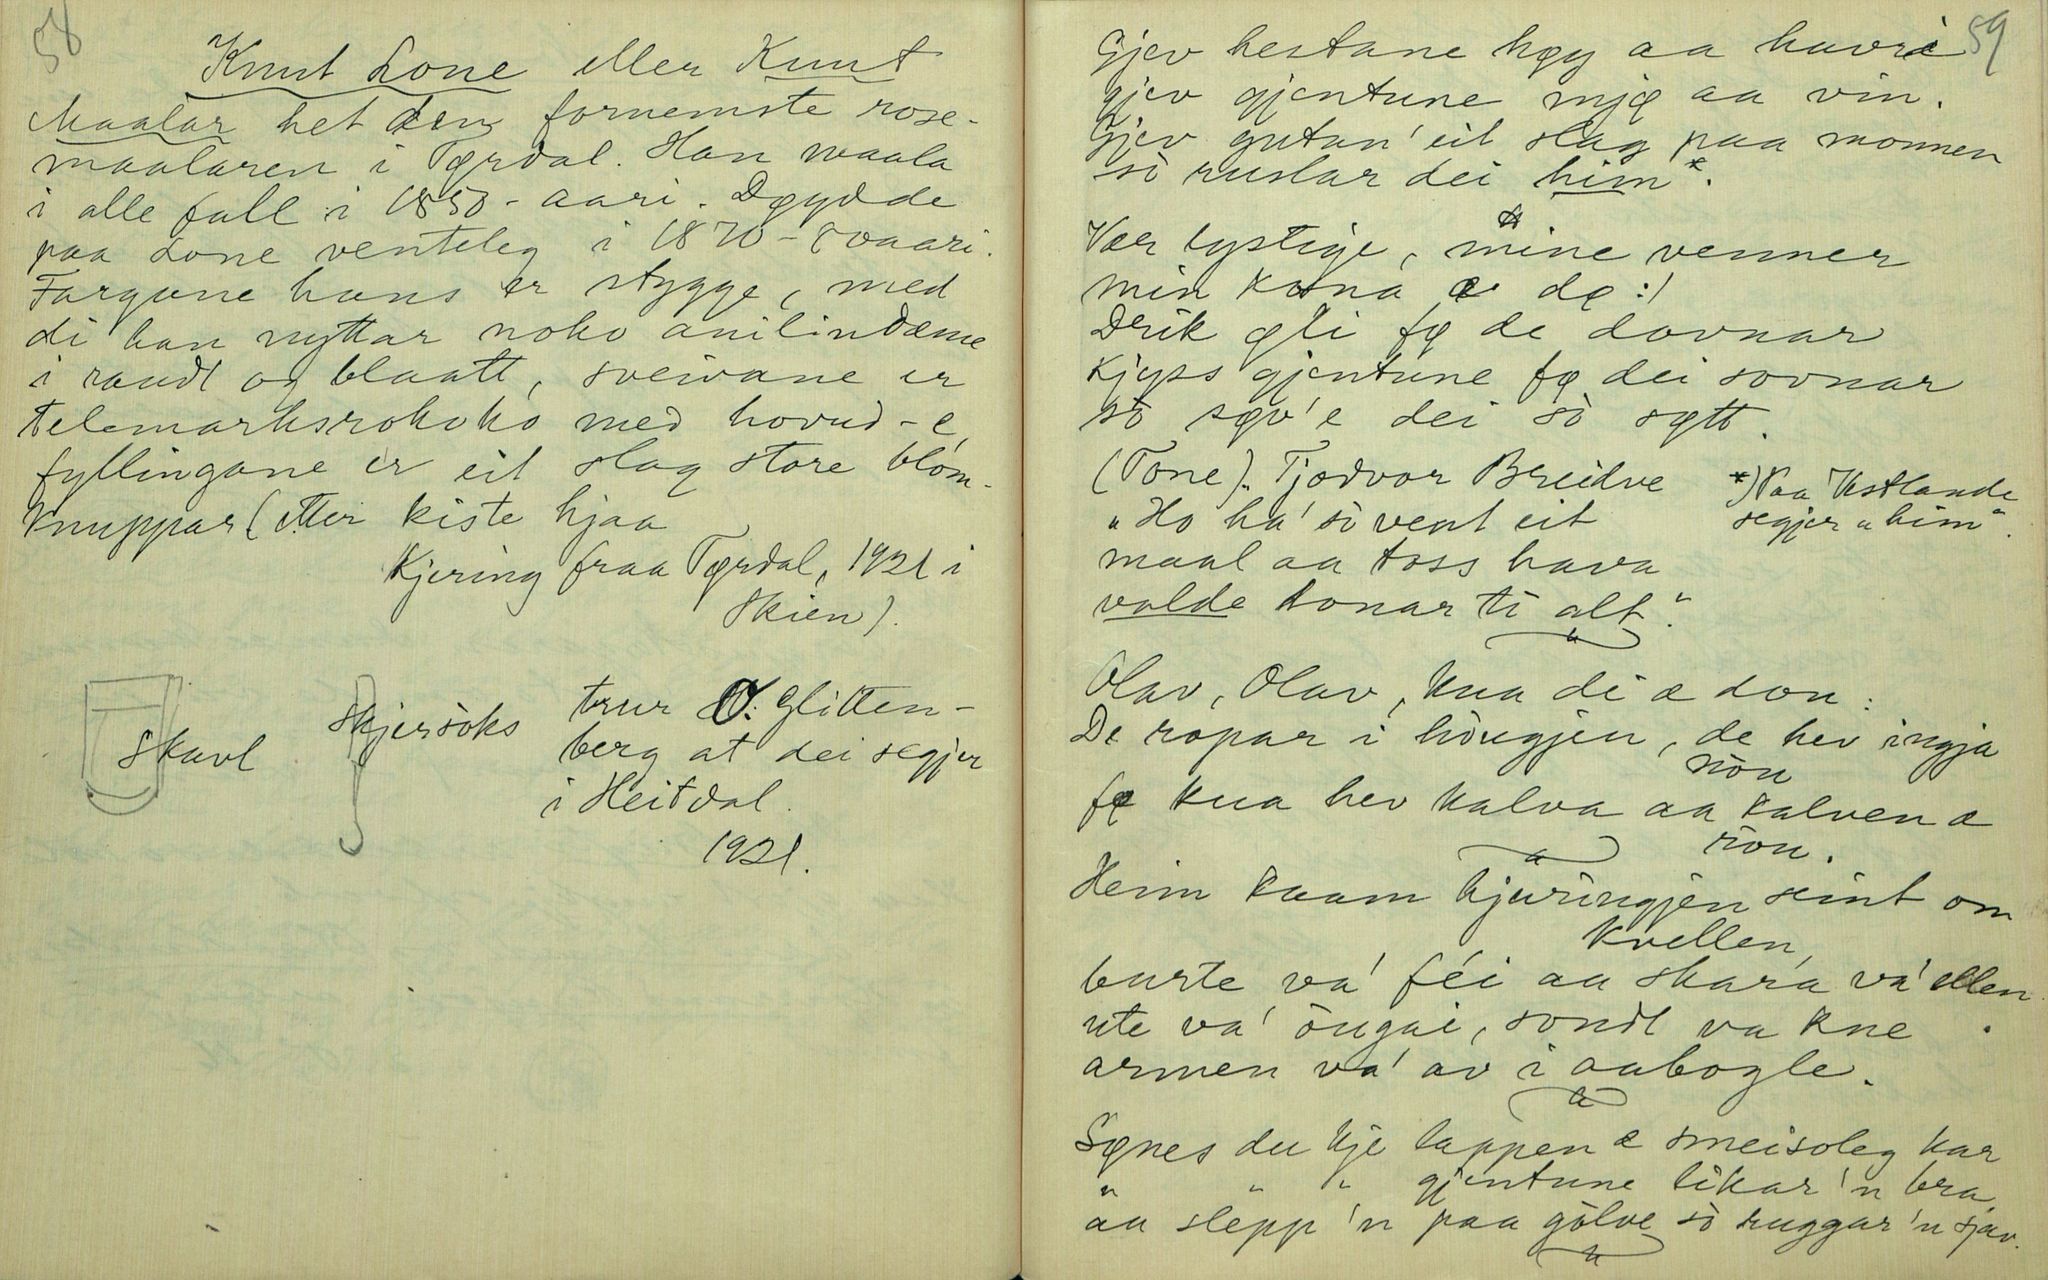 58
Knut Lone eller Knut
Maalar het den fornemste rose-
maalaren i Tørdal. Han maala
i alle fall i 1850-aari. Døydde
paa Lone venteleg i 1870-80aari.
Fargane hans er stygge, med
di han nyttar noko anilindæme
i raudt og blaatt, sveivane er
telemarksrokoko med hovud-C,
fyllingane er eit slag store blóm-
knuppar (etter kiste hjaa
Kjering fraa Tørdal, 1921 i
Skien).
Skavl
Skjersòks
trur O. Glitten-
berg at dei segjer
i Heitdal.
1921.
59
Gjev hestane høy aa havre
gjev gjentune mjø aa vin.
Gjev gutan' eit slag paa monnen
sò ruslar dei him*.
Vær lystige, mine venner
min kona æ dø :/
Drik øli fø de dovnar
Kjyss gjentune fø dei sovnar
sò søv'e dei sò søtt.
(Tone). Tjodvor Breidve
"Ho ha' sò vent eit
maal aa toss hava
valde konar ti alt".
*) Paa Vestlande
segjer "him".
Olav, Olav, kua di æ don:
De ropar i hòugjen, de hev ingjæ
nòu
fø kua hev kalva aa kalven æ
ròu.
Heim kaam hjuringjen seint om
kvellen,
burte va' féi aa skara va' ellen
ute va' òugai, sondt va kne
armen va' av i aabogle.
Sønes du kje lappen æ smeisoleg kar
" " " gjentune likar'n bra,
aa slepp'n paa gòlve sò ruggar'n sjav.